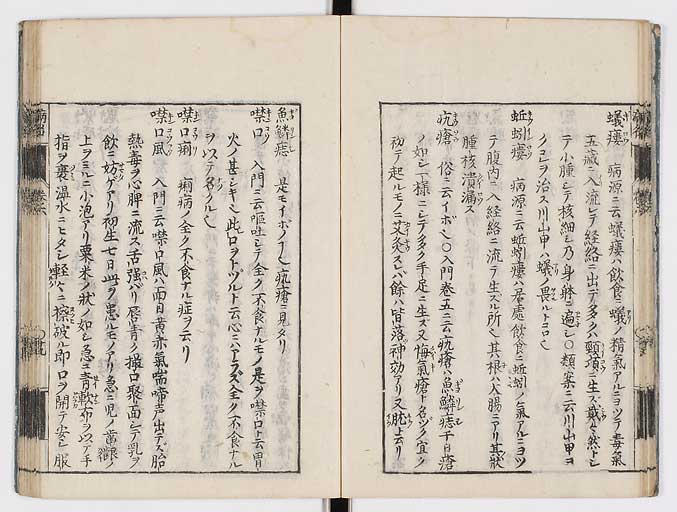 蟻瘻 病源ニ云蟻瘻ハ飲食ニ蟻ノ精氣アルニヨツテ毒氣
五藏ニ入流レテ経絡ニ出テ多クハ頸項ニ生ズ戴々然トシ
テ小腫レテ核細シ乃身躰ニ遍シ〇類案ニ云川山甲ヨ
ク已ヲ治ス川山甲ハ蟻ノ畏ルトコロ也
蚯蚓瘻 病源ニ云蚯蚓瘻ハ居處飲食ニ蚯蚓ノ氣アルニヨツ
テ腹内ニ入経絡ニ流テ生ズル所也其根ハ大腸ニアリ其状
腫核潰漏ス
疣瘡 俗ニ云イボ也〇入門巻五ニ云疣瘡ハ魚鱗痣千日瘡
ノ如シ一様ニシテ多ク手足ニ生ズ又悔氣瘡ト名ヅク宜ク
初テ起ルモノニ艾灸スレバ餘ハ皆落神功アリ又肬ト云リ
魚鱗痣 是モイボノ了也疣瘡ニ見タリ
噤口 入門ニ云嘔吐シテ全ク不食ナルモノ是ヲ噤口ト云胃
火ノ甚シキ也此口ヲトヅルト云心ニハアラズ全ク不食ナル
ヲ以テ名クル也
噤口痢 痢病ノ全ク不食ナル症ヲ云リ
噤口風 入門ニ云噤口風ハ兩目黄赤氣喘啼声出デズ胎
熱毒ヲ心脾ニ流ス舌強バリ唇青ク撮口聚面シテ乳ヲ
飲ニ妨ゲアリ初生七日此ヲ患ルモノアリ急ニ児ノ歯齦ノ
上ヲミルニ小泡アリ粟米ノ状ノ如シ急ニ青軟布ヲ以テ手
指ヲ裹温水ニヒタシ軽々ニ擦破ル即口ヲ開テ安シ服